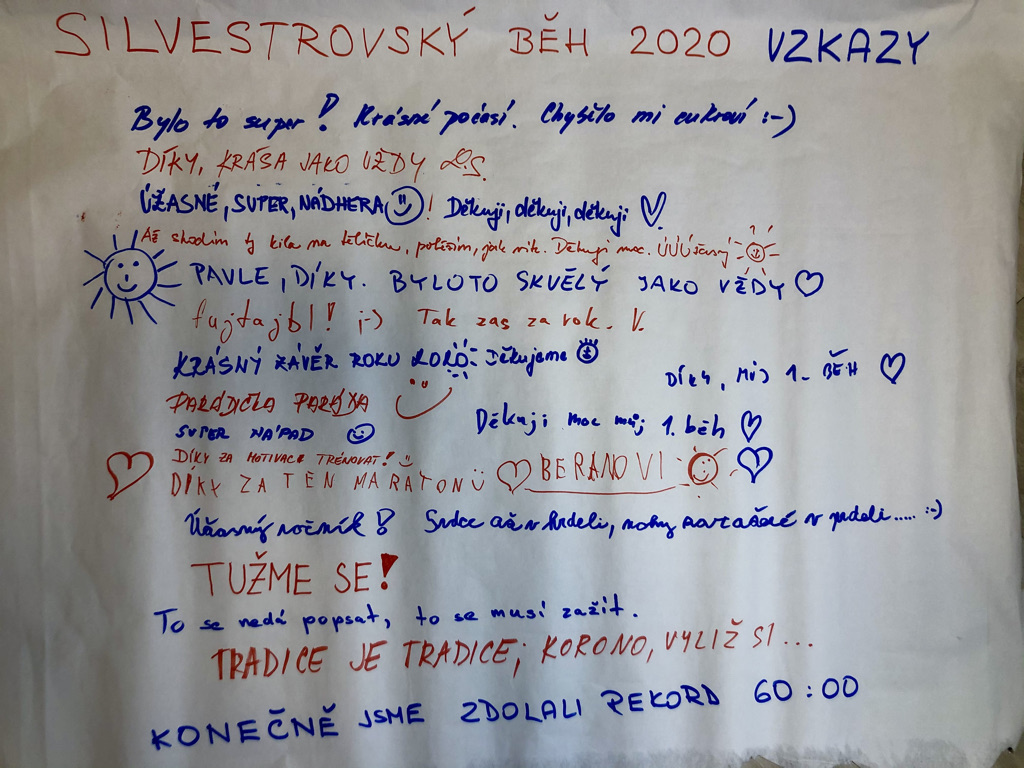 SILVESTROVSKÝ BĚH 2020 VZKAZY
Bylo to super! Krásné počasí. Chybělo mi cukroví :-)
DÍKY, KRÁSA JAKO VŽDY
ÚŽASNÉ, SUPER, NÁDHERA! Děkuji, děkuji, děkuji
Až shodím ty kila na tělíčku, poběžím, jak nik. Děkuji moc.
PAVLE, DÍKY. BYLO TO SKVĚLÝ JAKO VŽDY
fujtajbl! ;-) Tak zas za rok. V.
KRÁSNÝ ZÁVĚR ROKU 2020. Děkujeme
DÍKY, MŮJ 1. BĚH
PARÁDIČKA PARÁDA
Děkuji moc můj 1. běh
SUPER NÁPAD
DÍKY ZA MOTIVACI TRÉNOVAT!
DÍKY ZA TEN MARATONŮ BERANOVI
Úžasný ročník! Srdce až v hrdeli, nohy v prdeli..... :-)
TUŽME SE!
To se nedá popsat, to se musí zažít.
TRADICE JE TRADICE; KORONO, VYLIŽ SI...
KONEČNĚ JSME ZDOLALI REKORD 60:00